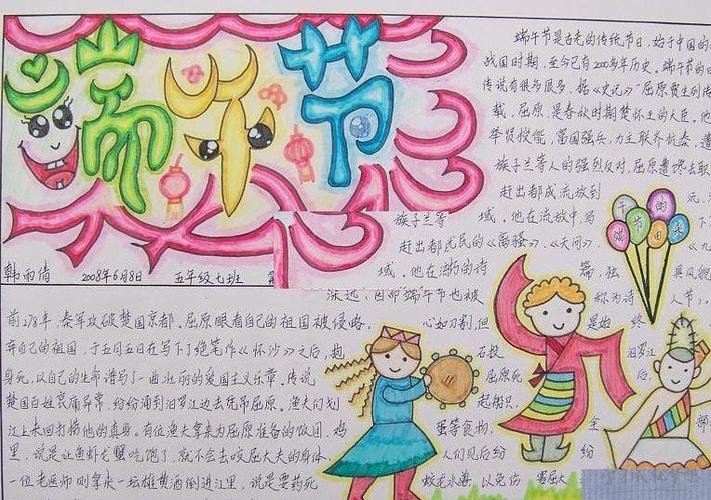 端午节
端午节是古老的传统节日，始于中国的
战国时期，至今已有2000多年历史。端午节的由
传说有很多很多，据《史记》"屈原贾生列传
载，屈原，是春秋时期楚怀王的大臣。他
举贤授能，富国强兵，力主联齐抗秦，遭
族子兰等人的强烈反对，屈原遭馋去职
赶出都 流放到 元、
域，他在流放中，写
族子兰等
赶出都 《离骚》、《天问》、《九
域，他在 的诗 篇，独 具风貌
深远，因 端午节也被 称为诗 人节）。
端午节的由来
韩雨倩 2008年6月8日 五年级七班
前278年，秦军攻破楚国京都。屈原眼看自己的祖国被侵略， 心如刀割，但 是始 终
弃自己的祖国，于五月五日在写下了绝笔作《怀沙》之后，抱 石投 汨罗江
身死，以自己的生命谱写了一曲壮丽的爱国主义乐章。传说 屈原死 后，
楚国百姓哀痛异常，纷纷涌到汨罗江边去凭吊屈原。渔夫们划 起船只，
江上来回打捞他的真身。有位渔夫拿来为屈原准备的饭团、鸡 蛋等食物， 全 部
里，说是让鱼虾龙蟹吃饱了，就不会去咬屈大夫的身体。 人们见后纷 纷
一位老医师则拿来一坛雄黄酒倒进江里，说是要药死 蛟龙水兽，以免伤 害屈大